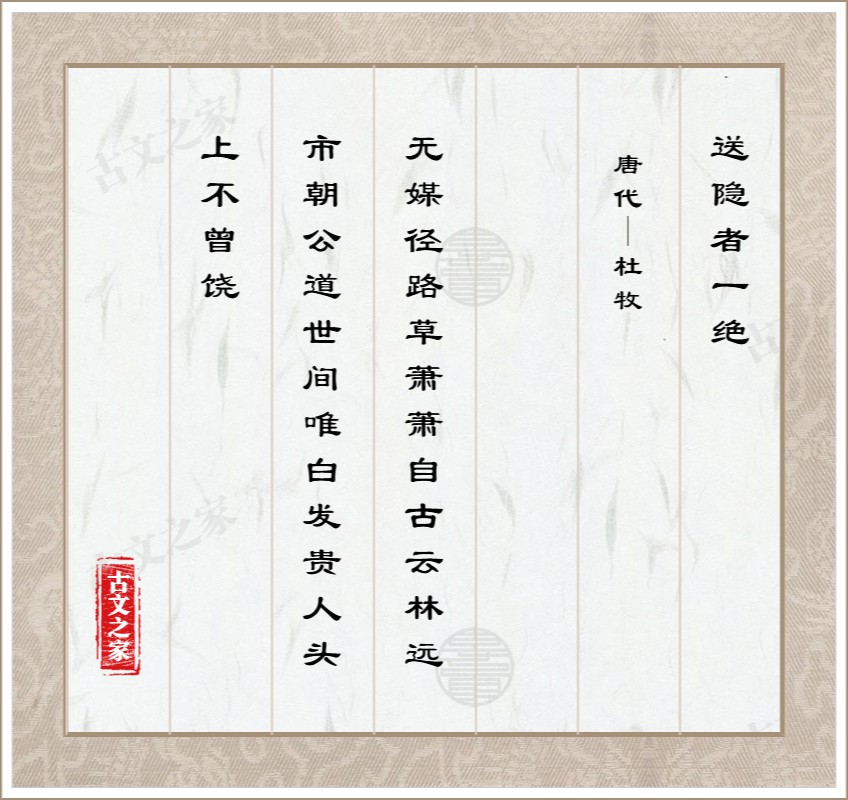 送隐者一绝
唐代—杜牧
无媒径路草萧萧自古云林远
市朝公道世间唯白发贵人头
上不曾饶
古文之家
古文之家
文之家
古